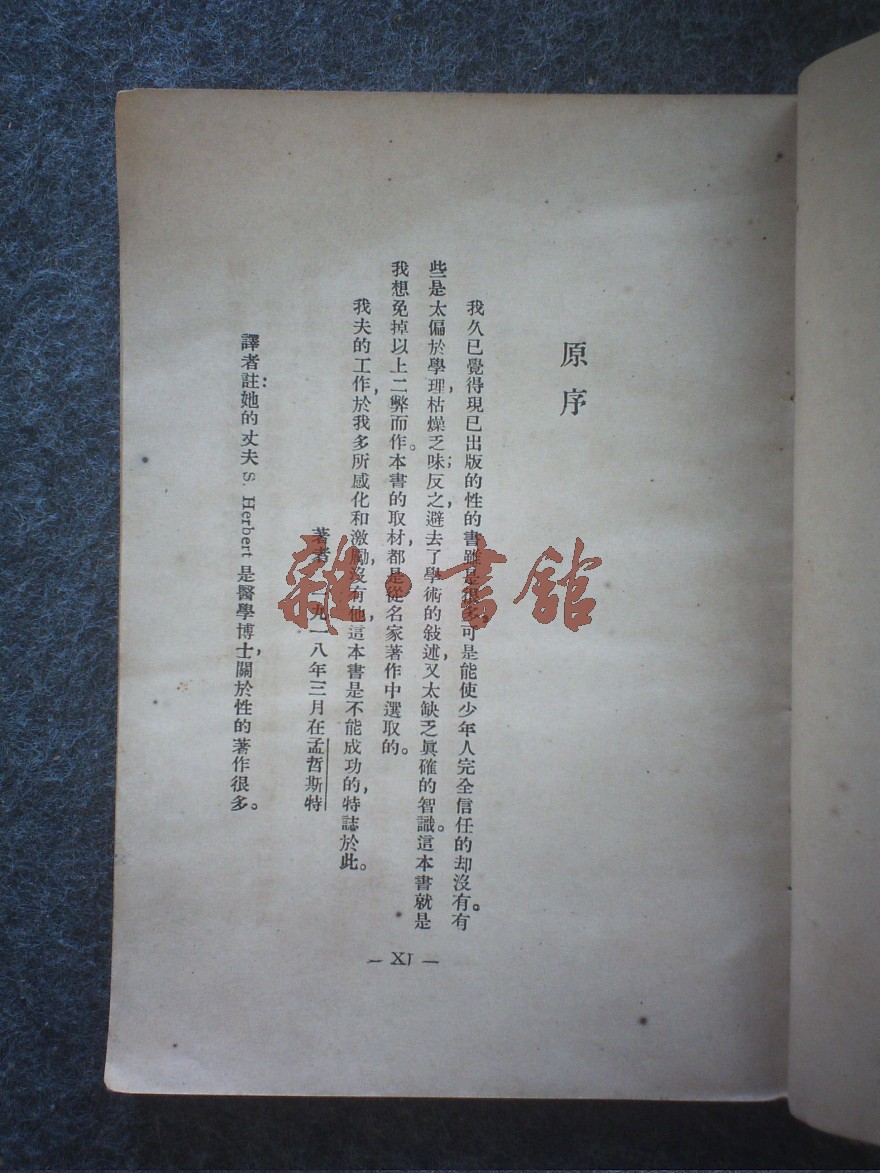 原序
我久已覺得現已出版的性的書雖是很多，可是能使少年人完全信任的却沒有。有
些是太偏於學理，枯燥乏味；反之，避去了學術的敍述，又太缺乏眞確的智識。這本書就是
我想免掉以上二弊而作。本書的取材，都是從名家著作中選取的。
我夫的工作，於我多所感化和激勵，沒有他，這本書是不能成功的，特誌於此。
著者 一九一八年三月在孟哲斯特
譯者註：她的丈夫 S. Herbert 是醫學博士，關於性的著作很多。
— XI —
雜·書館